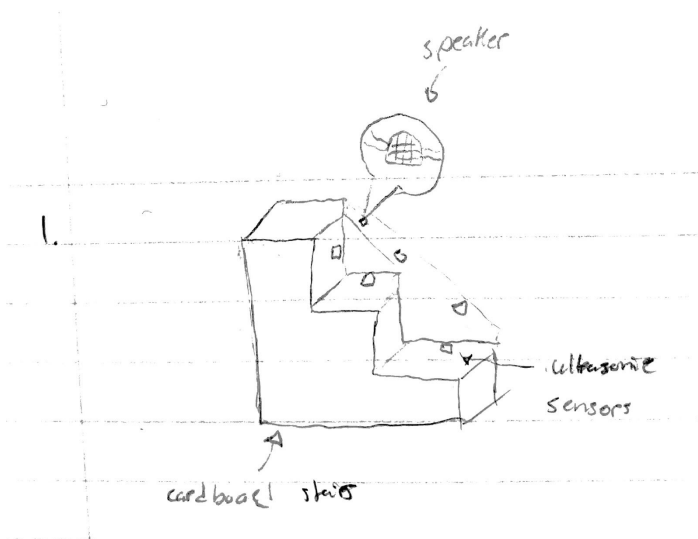 speaker
1.
ultrasonic
sensors
cardboard stairs